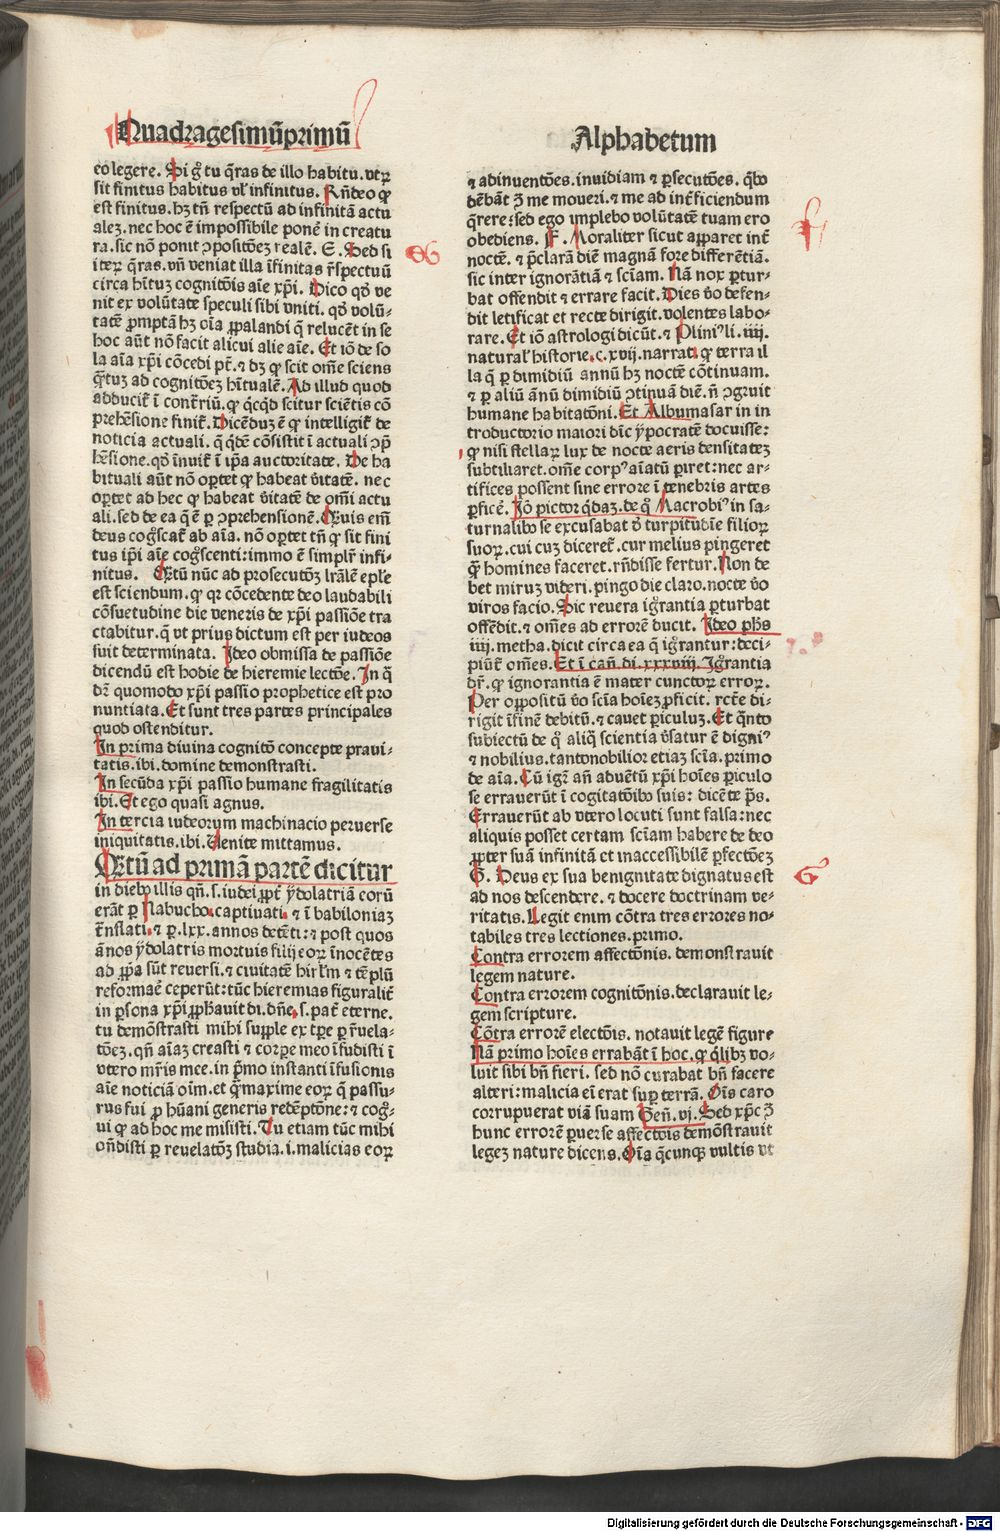 Quadragesimũprimũ
eo legere. Si gͦ tu q̃ras de illo habitu. vtꝝ
sit finitus habitus vl̓ infinitus. Rñdeo ꝙ
est finitus. hꝫ tñ respectũ ad infinitã actu
aleꝫ. nec hoc ẽ impossibile ponẽ in creatu
ra. sic nõ ponit ↄpositõeꝫ realẽ. E. Sed si
iteꝝ q̃ras. vñ veniat illa ĩfinitas r̃spectuũ
circa hr̃ituꝫ cognitõis aĩe xp̃i. Dico qͦ ve
nit ex volũtate speculi sibi vniti. qͦ volũ-
tatẽ ꝓmptã hꝫ oĩa ꝓpalandi q̃ relucẽt in se
hoc aũt nõ facit alicui alie aĩe. Et iõ de so
la aĩa xp̃i cõcedi pt̃. ⁊ dꝫ ꝙ scit om̃e sciens
q̃tuꝫ ad cognitõeꝫ hĩtualẽ. Ad illud quod
adducit̃ ĩ contr̃riũ. ꝙ qͥcqͥd scitur sciẽtis cõ
prehẽsione finit̃. Dicẽduꝫ ẽ ꝙ intelligit̃ de
noticia actuali. q̃ qͥdẽ cõsistit ĩ actuali ↄp̃
hẽsione. qͦ ĩnuit̃ ĩ ip̃a auctoritate. De ha
bituali aũt nõ oꝑtet ꝙ habeat v̓itatẽ. nec
oꝑtet ad hec ꝙ habeat v̓itatẽ de om̃i actu
ali. sed de ea q̃ ẽ ꝑ ↄprehensionẽ. Quis em̃
deus cogͦscat̃ ab aĩa. nõ oꝑtet tñ ꝙ sit fini
tus ip̃i aĩe cogͦscenti: immo ẽ simplr̃ infi-
nitus. Etũ nũc ad prosecutõꝫ lr̃alẽ epl̓e
est sciendum. ꝙ qꝛ cõcedente deo laudabili
cõsuetudine die veneris de xp̃i passiõe tra
ctabitur. q̃ vt prius dictum est per iudeos
fuit determinata. Ideo obmissa de passiõe
dicendũ est hodie de hieremie lectõe. In q̃
dr̃ quomodo xp̃i passio prophetice est pro
nuntiata. Et sunt tres partes principales
quod ostenditur.
In prima diuina cognitõ concepte praui-
tatis. ibi. domine demonstrasti.
In secũda xp̃i passio humane fragilitatis
ibi. Et ego quasi agnus.
In tercia iudeorum machinacio peruerse
iniquitatis. ibi. Uenite mittamus.
Etũ ad primã partẽ dicitur
in diebꝰ illis qñ. s. iudei ꝓpt̃ ydolatriã corũ
erãt ꝑ Nabucho captiuati. ⁊ ĩ babiloniaꝫ
tr̃nslati. ⁊ ꝑ. lxx. annos detẽti: ⁊ post quos
ãnos ydolatris mortuis filij eoꝝ ĩnocẽtes
ad ꝓp̃a sũt reuersi. ⁊ ciuitatẽ hirl̓m ⁊ tẽplũ
reformãe ceperũt: tũc hieremias figuralit̃
in ꝑsona xp̃i ꝓphauit di. dñe. s. pat̃ eterne.
tu demõstrasti mihi supple ex tꝑe ꝑ r̃uela-
tõeꝫ. qñ aĩaꝫ creasti ⁊ corpe meo ĩfudisti ĩ
vtero mr̃is mee. in pͥmo instanti ĩfusionis
aĩe noticiã oĩm. et q̃maxime eoꝝ q̃ passu-
rus fui ꝓ hũani generis redẽptõne: ⁊ cogͦ-
ui ꝙ ad hoc me misisti. Tu etiam tũc mihi
oñdisti ꝑ reuelatõꝫ studia. i. malicias eoꝝ
Alphabetum
⁊ adinuentões. inuidiam ⁊ ꝑsecutões. qͥbꝰ
debãt ꝫ̃ me moueri. ⁊ me ad int̃ficiendum
q̃rere: sed ego implebo volũtatẽ tuam ero
obediens. F. Moraliter sicut apparet int̃
noctẽ. ⁊ p̃clarã diẽ magnã fore differẽtiã.
sic inter ignorãtiã ⁊ sciãm. Nã nox ꝑtur-
bat offendit ⁊ errare facit. Dies v̓o defen-
dit letificat et recte dirigit. volentes labo-
rare. Et iõ astrologi dicũt. ⁊ Pliniꝰ li. iiii.
natural̓ historie. c. xvij. narrat. ꝙ terra il
la q̃ ꝑ dimidiũ annũ hꝫ noctẽ cõtinuam.
⁊ ꝑ aliũ ãnũ dimidiũ ↄtinuã diẽ. ñ ↄgruit
humane habitatõni. Et Albumasar in in
troductorio maiori dĩc ypocratẽ docuisse:
ꝙ nisi stellaꝝ lux de nocte aeris densitateꝫ
subtiliaret. om̃e corpꝰ aĩatũ ꝑiret: nec ar-
tifices possent sine errore ĩ tenebris artes
ꝑficẽ. Iõ pictor qͥdaꝫ. de qͦ Macrobiꝰ in sa-
turnalibꝰ se excusabat ỡ turpitudĩe filioꝝ
suoꝝ. cui cuꝫ diceret̃. cur melius pingeret
q̃ homines faceret. rñdisse fertur. Non de
bet miruꝫ videri. pingo die claro. nocte v̓o
viros facio. Sic reuera igr̃antia ꝑturbat
offẽdit. ⁊ om̃es ad errorẽ ducit. Ideo phs̃
iiii. metha. dicit circa ea q̃ igr̃antur: deci-
piũt̃ om̃es. Et ĩ cañ. di. xxxviii. Igr̃antia
dr̃. ꝙ ignorantia ẽ mater cunctoꝝ erroꝝ.
Per oppositũ v̓o sciã hoĩeꝫ ꝑficit. rct̃e di-
rigit ĩfinẽ debitũ. ⁊ cauet ꝑiculuꝫ. Et q̃nto
subiectũ de qͦ aliqͣ scientia v̓satur ẽ digniꝰ
⁊ nobilius. tantonobilior etiaꝫ sciã. primo
de aĩa. Cũ igr̃ añ aduẽtũ xp̃i hoĩes ꝑiculo
se errauerũt ĩ cogitatõibꝰ suis: dicẽte p̃s.
Errauerũt ab vtero locuti sunt falsa: nec
aliquis posset certam sciãm habere de deo
ꝓpter suã infinitã et inaccessibilẽ ꝑfectõeꝫ
G. Deus ex sua benignitate dignatus est
ad nos descendere. ⁊ docere doctrinam ve-
ritatis. Legit enim cõtra tres errores no-
tabiles tres lectiones. primo.
Contra errorem affectõnis. demonstrauit
legem nature.
Contra errorem cognitõnis. declarauit le-
gem scripture.
Cõtra errorẽ electõis. notauit legẽ figure
Nã primo hoĩes errabãt ĩ hoc. ꝙ qͥlibꝫ vo-
luit sibi bñ fieri. sed nõ curabat bñ facere
alteri: malicia eĩ erat suꝑ terrã. Oĩs caro
corrupuerat viã suam Geñ. vj. Sed xp̃c ꝫ̃
hunc errorẽ ꝑuerse affectõis demõstrauit
legeꝫ nature dicens. Oĩa q̃cunqꝫ vultis vt
Digitalisierung gefördert durch die Deutsche Forschungsgemeinschaft - DFG